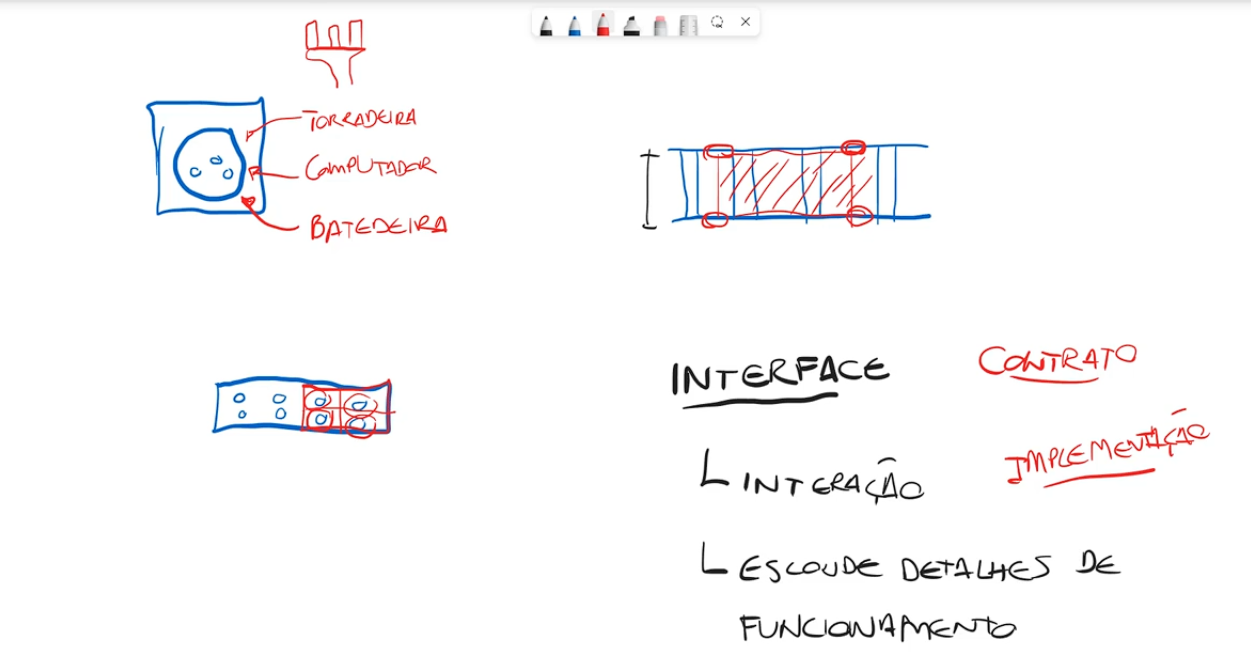 TORRADEIRA
COMPUTADOR
BATEDEIRA
INTERFACE
CONTRATO
IMPLEMENTAÇÃO
INTERAÇÃO
ESCONDE DETALHES DE
FUNCIONAMENTO